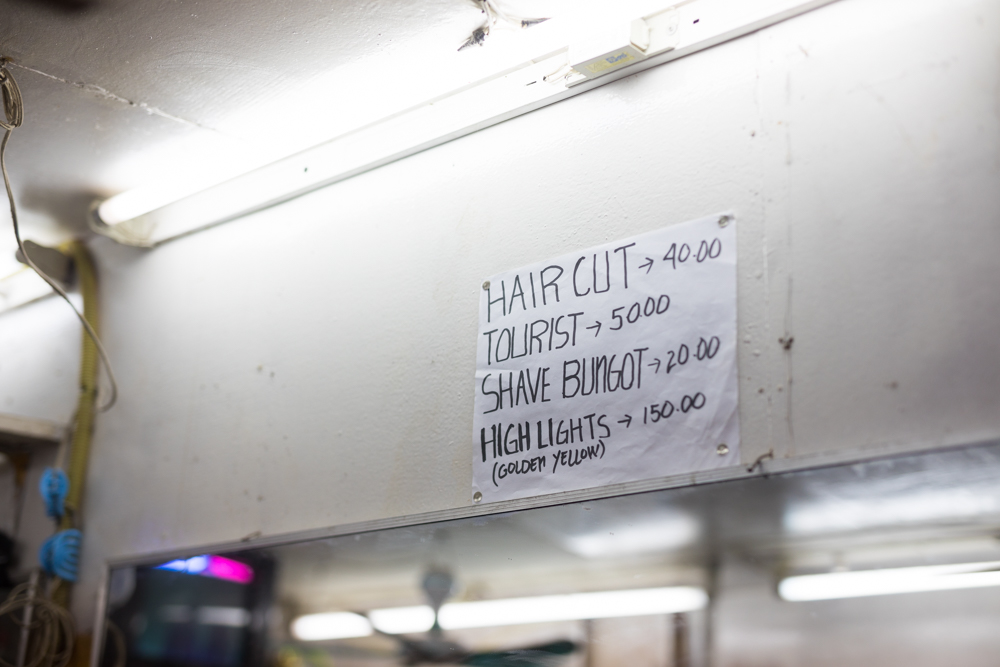 HAIR CUT → 40.00
TOURIST → 50.00
SHAVE BUNGOT → 20.00
HIGH LIGHTS → 150.00
(GOLDEN YELLOW)